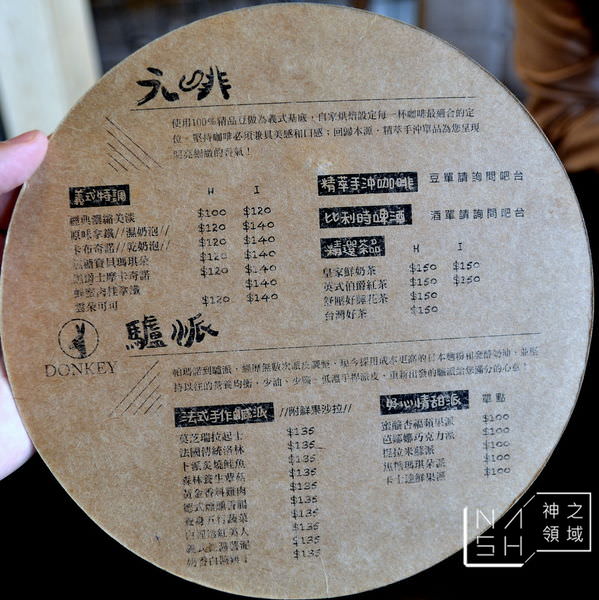 元啡
使用100%精品豆做為義式基底，自家烘焙設定每一杯咖啡最適合的定
位。堅持咖啡必須兼具美感和口感；回歸本源，精萃手沖單品為您呈現
的香氣！
義式特調 H I
經典濃縮美淡 $100 $120
原味拿鐵//濕奶泡// $120 $140
卡布奇諾//乾奶泡// $120 $140
寶貝瑪琪朵 $120 $140
爵士摩卡奇諾 $120 $140
拿鐵 $140
雲朵可可 $120 $140
精萃手沖咖啡 豆單請詢問吧台
比利時啤酒 酒單請詢問吧台
精選茶品 H I
皇家鮮奶茶 $150 $150
英式伯爵紅茶 $150 $150
舒壓好睡花茶 $150
台灣好茶 $150
DONKEY
驢派
帕瑪諾到驢派，經歷無數次派皮調整，現今採用成本更高的日本麵粉和發酵奶油，並堅
持以往的營養均衡、少油、少鹽、低溫手桿派皮，重新出發的驢派給您滿分的心意！
法式手作鹹派 //附鮮果沙拉//
莫芝瑞拉起士 $135
法國傳統洛林 $135
卜派炙燒鮭魚 $135
森林養生蘑菇 $135
黃金香料雞肉 $135
德式 $135
蔬菜 $135
紅美人 $135
義式 $135
奶香白醬 $135
好心情甜派 單點
蜜釀香福蘋果派 $100
芭娜娜巧克力派 $100
提拉米蘇派 $100
焦糖瑪琪朵派 $100
卡士達鮮果派 $100
NASH 神之領域